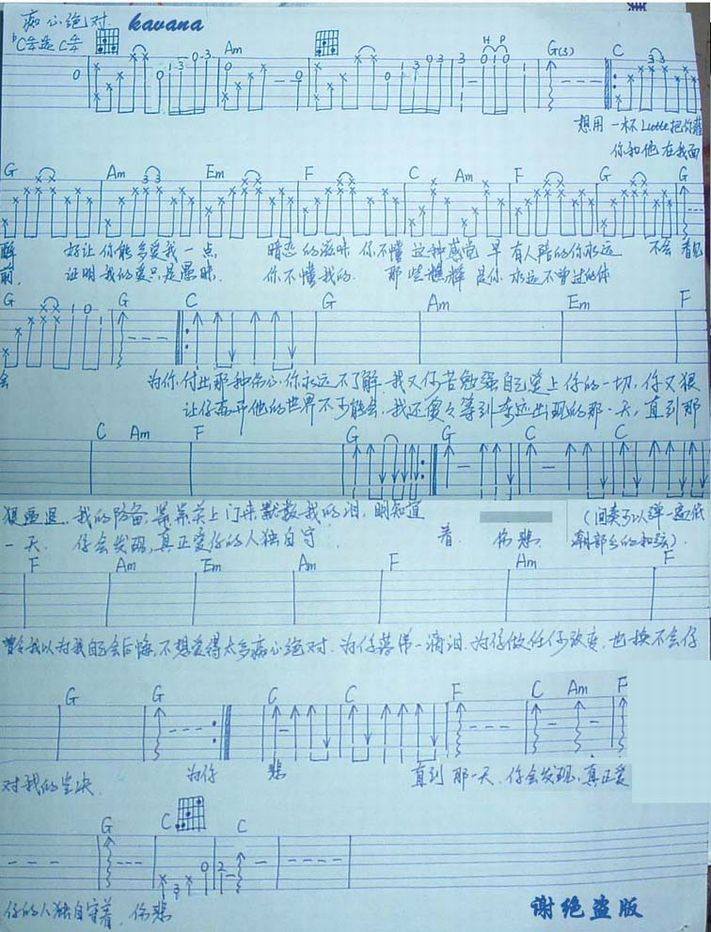 痴心绝对 kavana
Am G(3) C
H P
0 1 3 0 3 0 0 1 3 0 3 3 1 0 1 0 3 3
想用一杯Latte把你灌
你和他在我面
G Am Em F C Am F G G
醉 好让你能多爱我一点 暗恋的滋味 你不懂 这种感觉 早有人陪的你永远 不会
前 证明我的爱只是愚昧 你不懂我的 那些憔悴 是你永远不曾过的体
G G C G Am Em F
会 为你付出那种伤心你永远不了解 我又何苦勉强自己爱上你的一切 你又狠
让你离开他的世界不可能会 我还傻傻等到奇迹出现的那一天 直到那
C Am F G G C C
狠逼退 我的防备 静静关上门来默数我的泪 明知道
一天 你会发现 真正爱你的人独自守 着 伤悲
(间奏可以弹一遍低
潮部分的和弦)
F Am Em Am F Am F
曾经我以为我自己会后悔 不想爱得太多痴心绝对 为你落第一滴泪 为你做任何改变 也换不会你
G G C C F C Am F
对我的坚决 为你 悲 直到那一天 你会发现 真正爱
G C C
你的人独自守着 伤悲
谢绝盗版